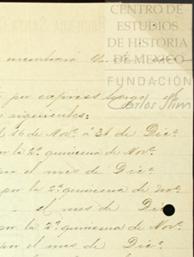 CENTRO DE
ESTUDIOS
DE HISTORIA
DE MEXICO
FUNDACIÓN
Carlos Slim
por express
siguientes:
16 de Novᵉ. á 31 de Dicᵉ.
por la 2ª quincena de Novᵉ.
por el mes de Dicᵉ.
por la 2ª quincena de Novᵉ.
el mes de Dicᵉ.
por la 2ª quincena de Novᵉ.
por el mes de Dicᵉ.